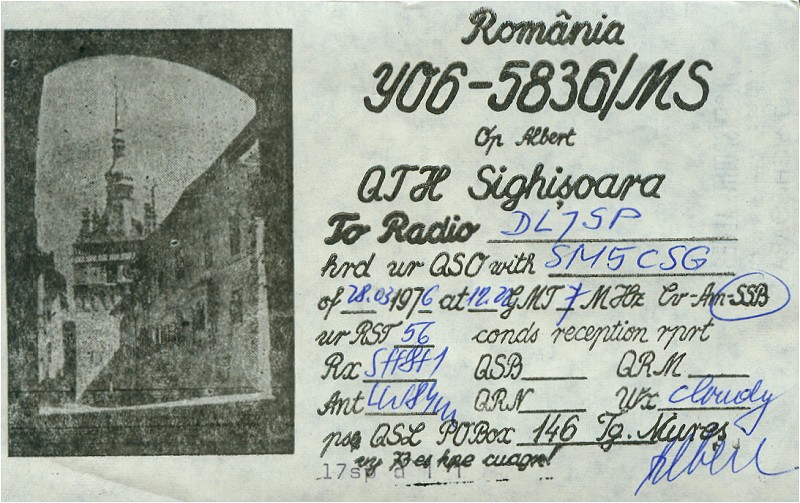 România
YO6-5836/MS
Op Albert
QTH Sighişoara
To Radio DL7SP
hrd ur QSO with SM5CSG
of 28.03 1976 at GMT 7 MHz Cv-Am-SSB
ur RST 56 conds reception rprt
Rx QSB QRM
Ant QRN Wx cloudy
pse QSL POBox 146 Tg. Mureş
vy 73 es hpe cuagn!
17sp d
Albert